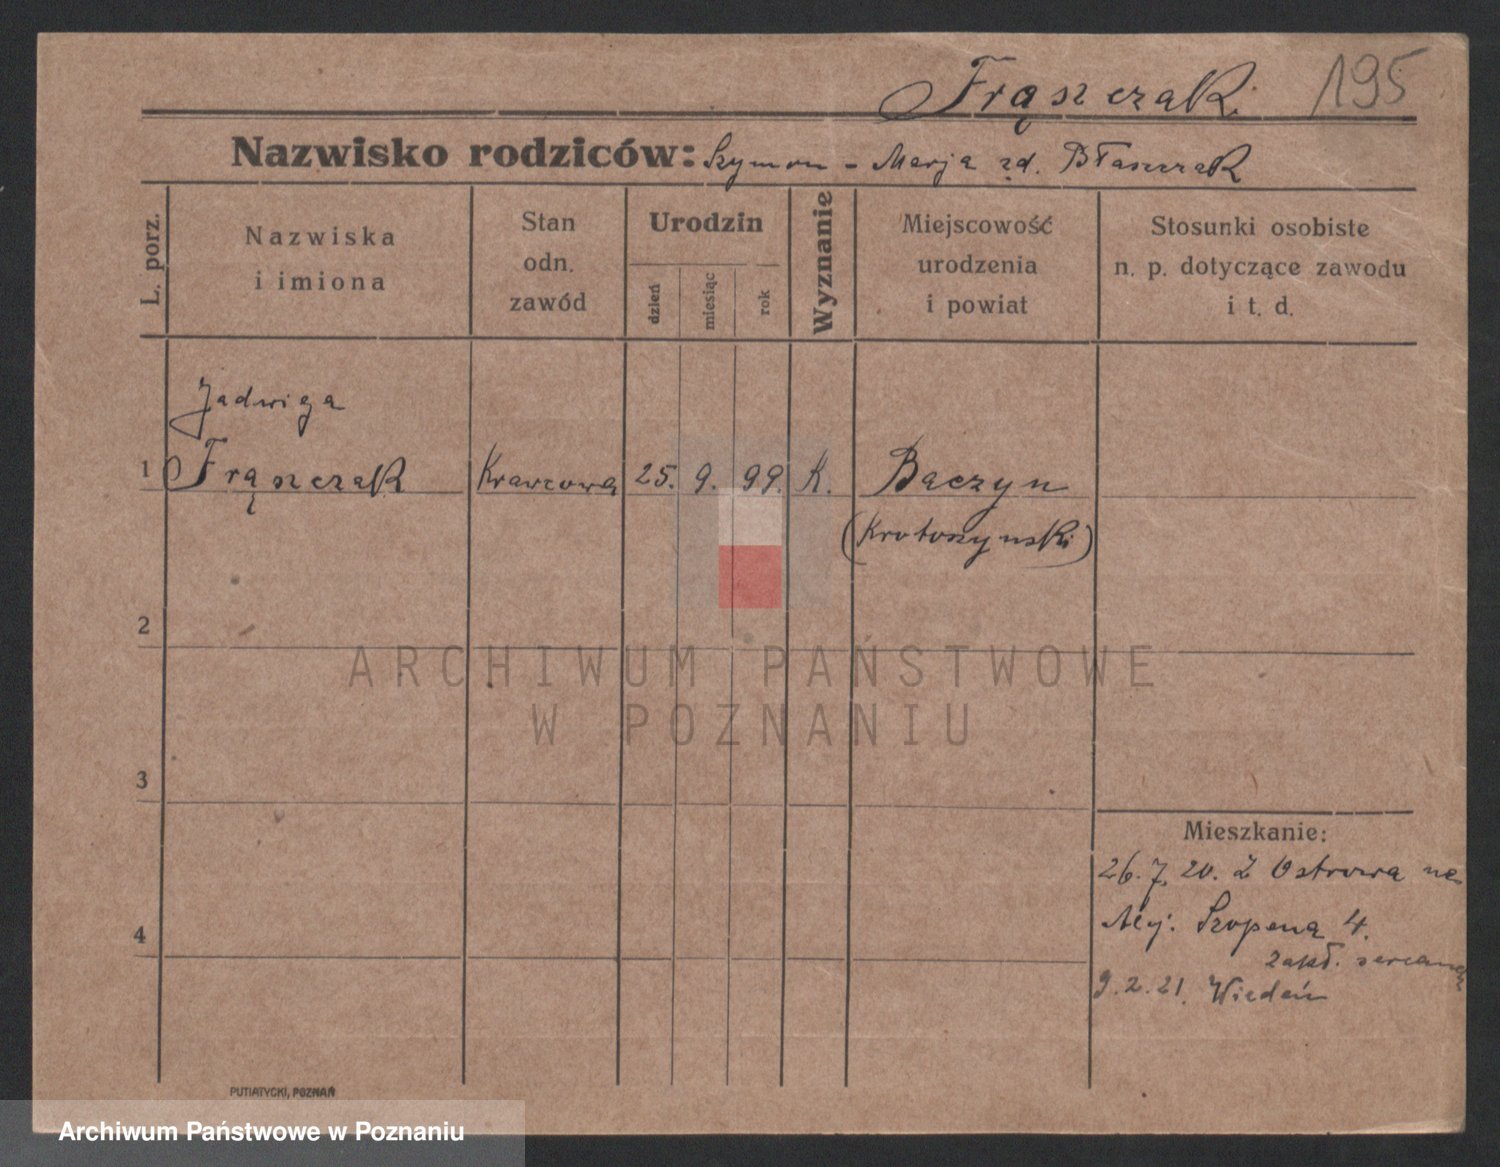 Frąszczak 195
Nazwisko rodziców: Szymon - Marja zd. Błaszczak
L. porz.
Nazwiska i imiona
Stan odn. zawód
Urodzin
dzień
miesiąc
rok
Wyznanie
Miejscowość urodzenia i powiat
Stosunki osobiste n. p. dotyczące zawodu i t. d.
Jadwiga
1 Frąszczak Krawcowa 25. 9. 99. K. Baczyn
(Krotoszynski)
2
ARCHIWUM PAŃSTWOWE
W POZNANIU
3
Mieszkanie:
26.7.20. Z Ostrowa na
Alej. Szopena 4.
4
zakł.
9.2.21. Wiedeń
PUTIATYCKI, POZNAŃ
Archiwum Państwowe w Poznaniu